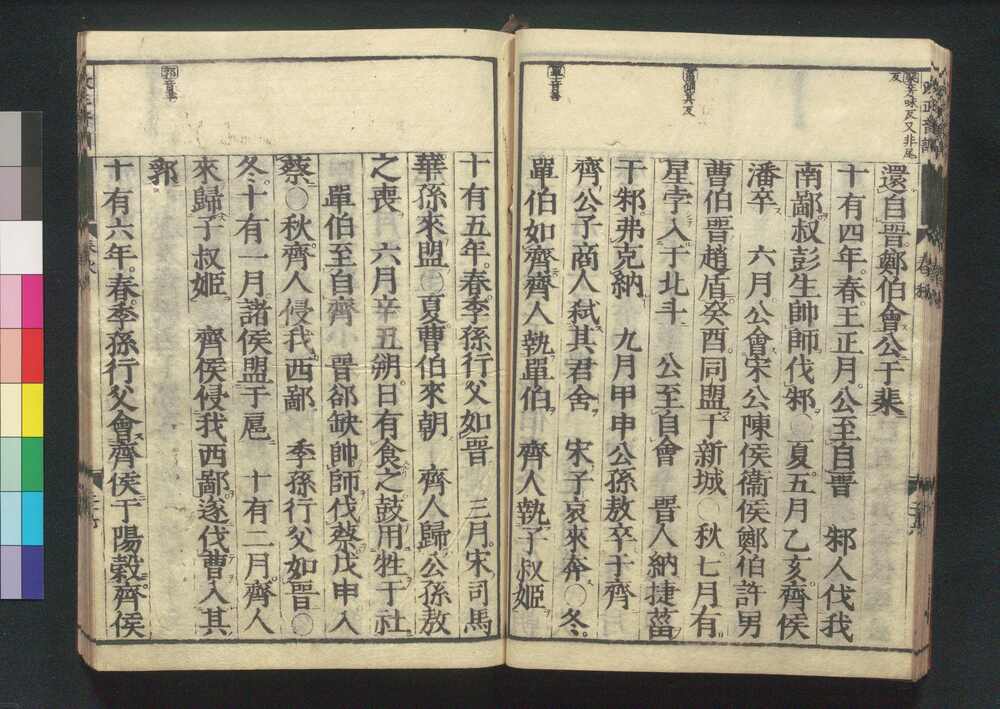 還自晋鄭伯會公于棐
十有四年春王正月公至自晋 邾人伐我
南鄙叔彭生帥師伐邾○夏五月乙亥齊侯
潘卒 六月公會宋公陳侯衞侯鄭伯許男
曹伯晋趙盾癸酉同盟于新城○秋七月有
星孛入于北斗 公至自會 晋人納捷菑
于邾弗克納 九月甲申公孫敖卒于齊
齊公子商人弑其君舍 宋子哀來奔○冬
單伯如齊齊人執單伯 齊人執子叔姬
十有五年春季孫行父如晋 三月宋司馬
華孫來盟○夏曹伯來朝 齊人歸公孫敖
之喪 六月辛丑朔日有食之鼓用牲于社
單伯至自齊 晋郤缺帥師伐蔡戊申入
蔡○秋齊人侵我西鄙 季孫行父如晋○
冬十有一月諸侯盟于扈 十有二月齊人
來歸子叔姬 齊侯侵我西鄙遂伐曹入其
郛
十有六年春季孫行父會齊侯于陽穀齊侯
棐芳味反又非尾反
單音善
郛音孚